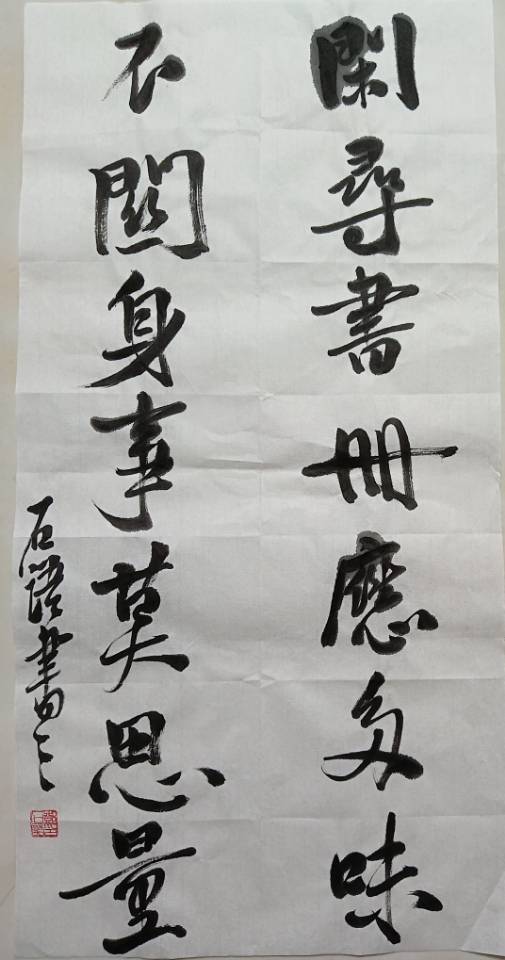 閑尋書冊應多味
不關身事莫思量
石語書